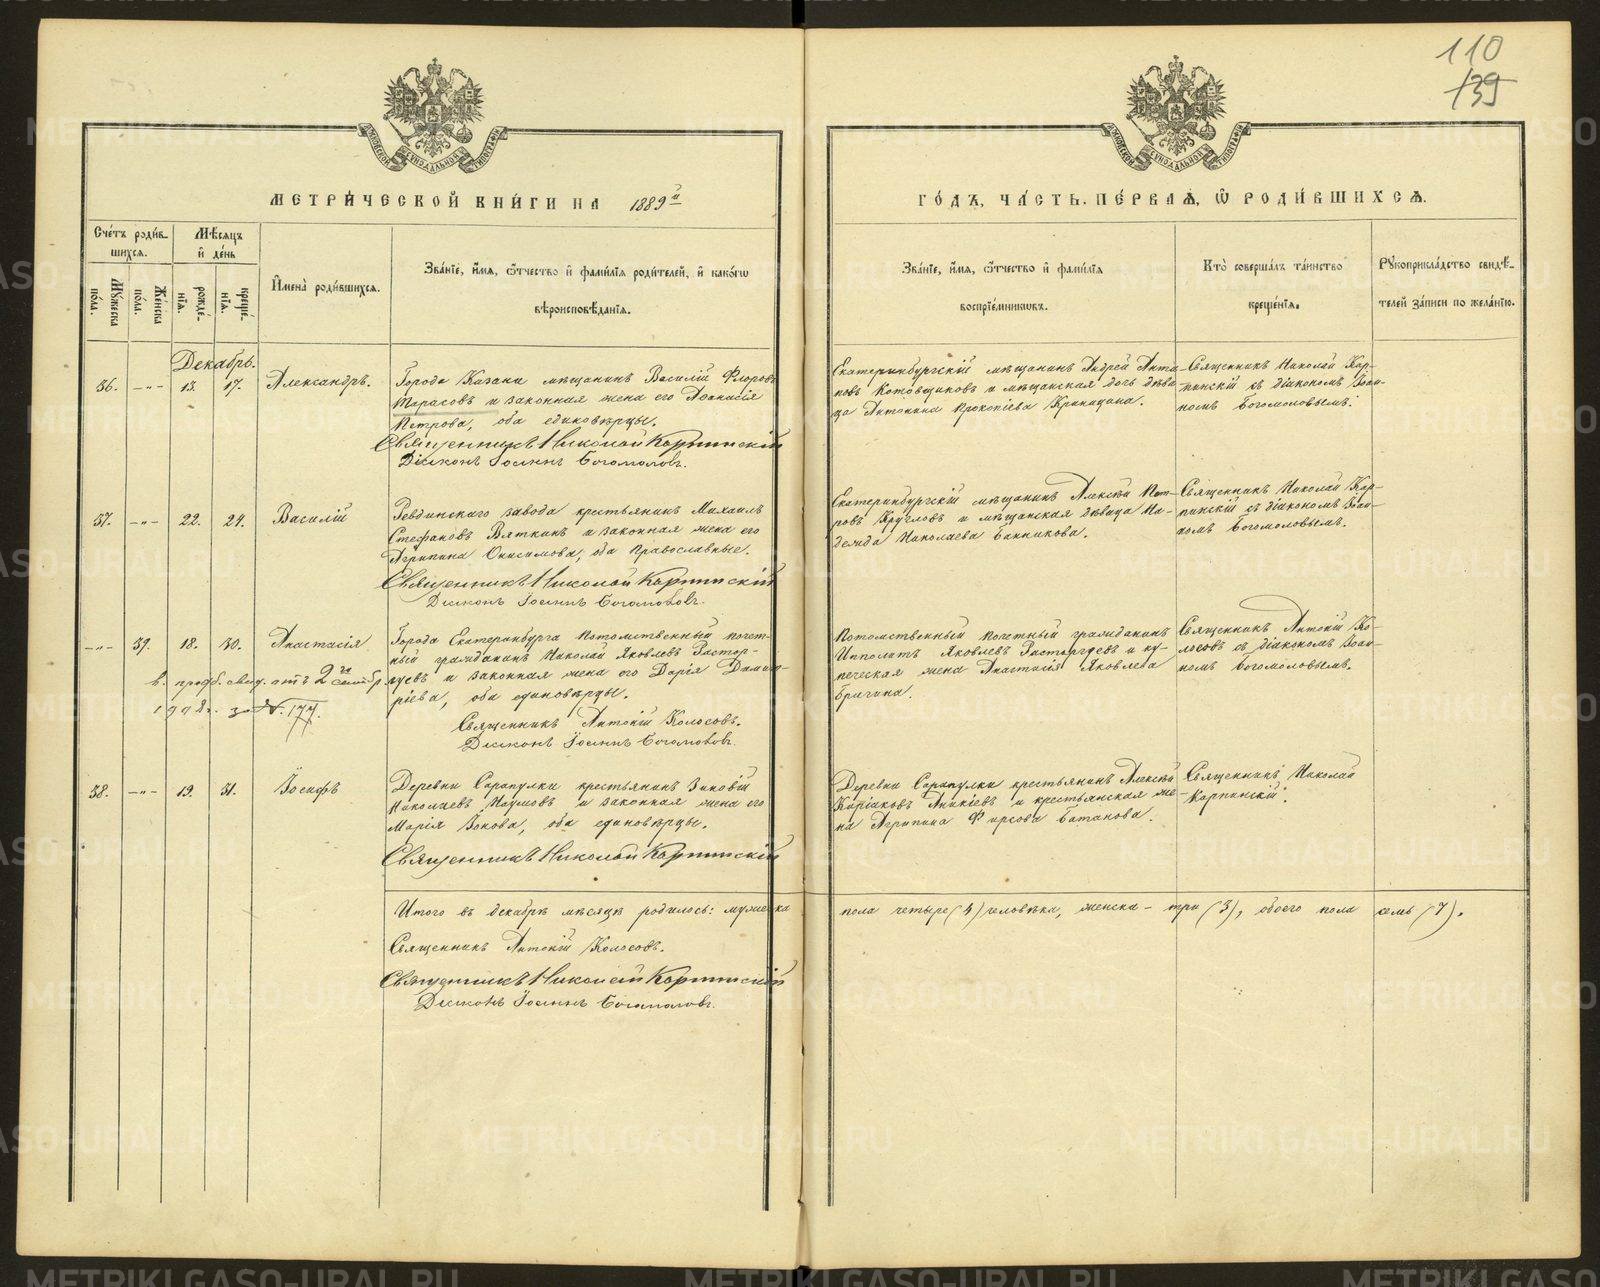 110
139
МОСКОВСКОЙ СѴНОДАЛЬНОЙ ТИПОГРАФІИ
МОСКОВСКОЙ СѴНОДАЛЬНОЙ ТИПОГРАФІИ
МЕТРИ́ЧЕСКОЙ КНИ́ГИ НА 1889й
ГО́ДЪ, ЧА́СТЬ ПЕ́РВАѦ, Ѽ РОДИ́ВШИХСѦ.
Сче́тъ роди́в-
шихсѧ.
Мѣ́сѧцъ
и҆ де́нь
Мꙋ́жеска по́ла.
Же́нска по́ла.
рожде́-нїѧ.
креще́-нїѧ.
И҆мена̀ роди́вшихсѧ.
Зва́нїе, и҆́мѧ, ѻ҆́тчество и҆ фами́лїѧ роди́телей, и҆ како́гѡ
вѣроисповѣ́данїѧ.
Зва́нїе, и҆́мѧ, ѻ҆́тчество и҆ фами́лїѧ
воспрїе́мникѡвъ.
Кто̀ соверша́лъ та́инство
креще́нїѧ.
Рꙋкоприкла́дство свидѣ́-
телей за́писи по жела́нїю.
Декабрь.
36. -"- 13. 17. Александръ.
Города Казани мѣщанинъ Василій Флоровъ
Тарасовъ и законная жена его Афанасія
Петрова, оба единовѣрцы.
Священникъ Николай Карпинскій
Діаконъ Іоаннъ Богомоловъ.
Екатеринбургскій мѣщанинъ Андрей Анти-
повъ Котовщиковъ и мѣщанская дочь дѣви-
ца Антонина Прокопіева Криницина.
Священникъ Николай Кар-
пинскій съ діакономъ Іоан-
номъ Богомоловымъ.
37. -"- 22. 24. Василій
Ревдинскаго завода крестьянинъ Михаилъ
Стефановъ Вяткинъ и законная жена его
Агрипина Онисимова, оба православные.
Священникъ Николай Карпинскій
Діаконъ Іоаннъ Богомоловъ.
Екатеринбургскій мѣщанинъ Алексѣй Пет-
ровъ Кругловъ и мѣщанская дѣвица На-
дежда Николаева Банникова.
Священникъ Николай Кар-
пинскій съ діакономъ Іоан-
номъ Богомоловымъ.
-"- 39. 18. 30. Анастасія
Города Екатеринбурга потомственный почет-
ный гражданинъ Николай Яковлевъ Растор-
гуевъ и законная жена его Дарія Димит-
ріева, оба единовѣрцы.
Священникъ Антоній Колосовъ.
Діаконъ Іоаннъ Богомоловъ.
свид. отъ 2го
за № 177.
Потомственный почетный гражданинъ
Ипполитъ Яковлевъ Расторгуевъ и ку-
печеская жена Анастасія Яковлева
Брагина.
Священникъ Антоній Ко-
лосовъ съ діакономъ Іоан-
номъ Богомоловымъ.
38. -"- 19. 31. Іосифъ
Деревни Сарапулки крестьянинъ Зиновій
Николаевъ Наумовъ и законная жена его
Марія Зокова, оба единовѣрцы.
Священникъ Николай Карпинскій
Деревни Сарапулки крестьянинъ Алексѣй
Киріаковъ Аникіевъ и крестьянская же-
на Агрипина Фирсова Батанова.
Священникъ Николай
Карпинскій.
Итого въ декабрѣ мѣсяцѣ родилось: мужеска пола четыре (4) человѣка, женска - три (3), обоего пола семь (7).
Священникъ Антоній Колосовъ.
Священникъ Николай Карпинскій
Діаконъ Іоаннъ Богомоловъ.
METRIKI.GASO-URAL.RU